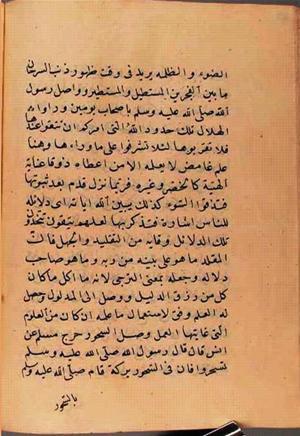 الضوء والظلمة يريد فى وقت ظهور ذنب السرحان
ما بين الفجرين المستطيل والمستطير وواصل رسول
الله صلى الله عليه وسلم باصحابه يومين وراوا
الهلال تلك حدود الله التى امركم ان تقفوا عندها
فلا تقربوها لئلا تشرفوا على ما وراءها وهنا
علم غامض لا يعلمه الا من اعطاه ذوقا عناية
الهية كالخضر وغيره فربما تزل قدم بعد ثبوتها
فتذوقوا السوء كذلك يبين الله اياته اى دلائله
للناس اشارة فتذكر بها لعلهم يتقون تتخذون
تلك الدلائل وقاية من التقليد والجهل فان
المقلد ما هو على بينة من ربه وما هو صاحب
دلالة وجعله بمعنى الترجى لانه ما كل
من رزق الدليل ووصل الى المدلول وحصل
له العلم وفق لاستعمال ما علمه ان كان من العلوم
التى غايتها العمل وصل السحور خرج مسلم عن
انس قال قال رسول الله صلى الله عليه وسلم
تسحروا فان فى السحور بركة قام صلى الله عليه وسلم
بالسحور